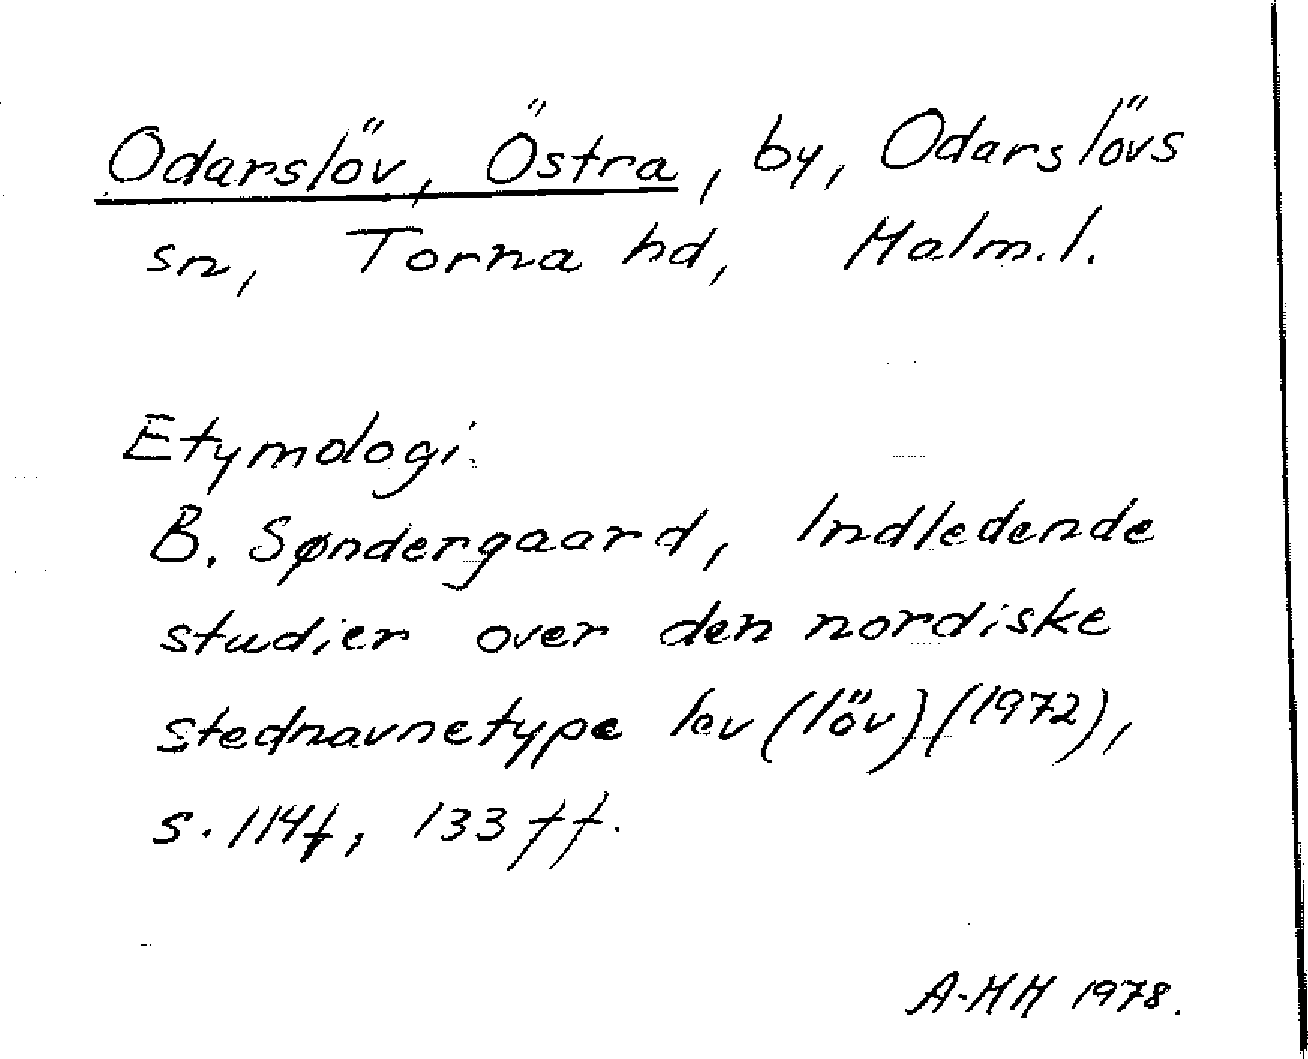 Odarslöv, Östra, by, Odarslövs
sn, Torna hd, Malm.l.
Etymologi:
B. Søndergaard, Indledende
studier over den nordiske
stednavnetype lev (löv) (1972),
s. 114f, 133 ff.
A-MH 1978.